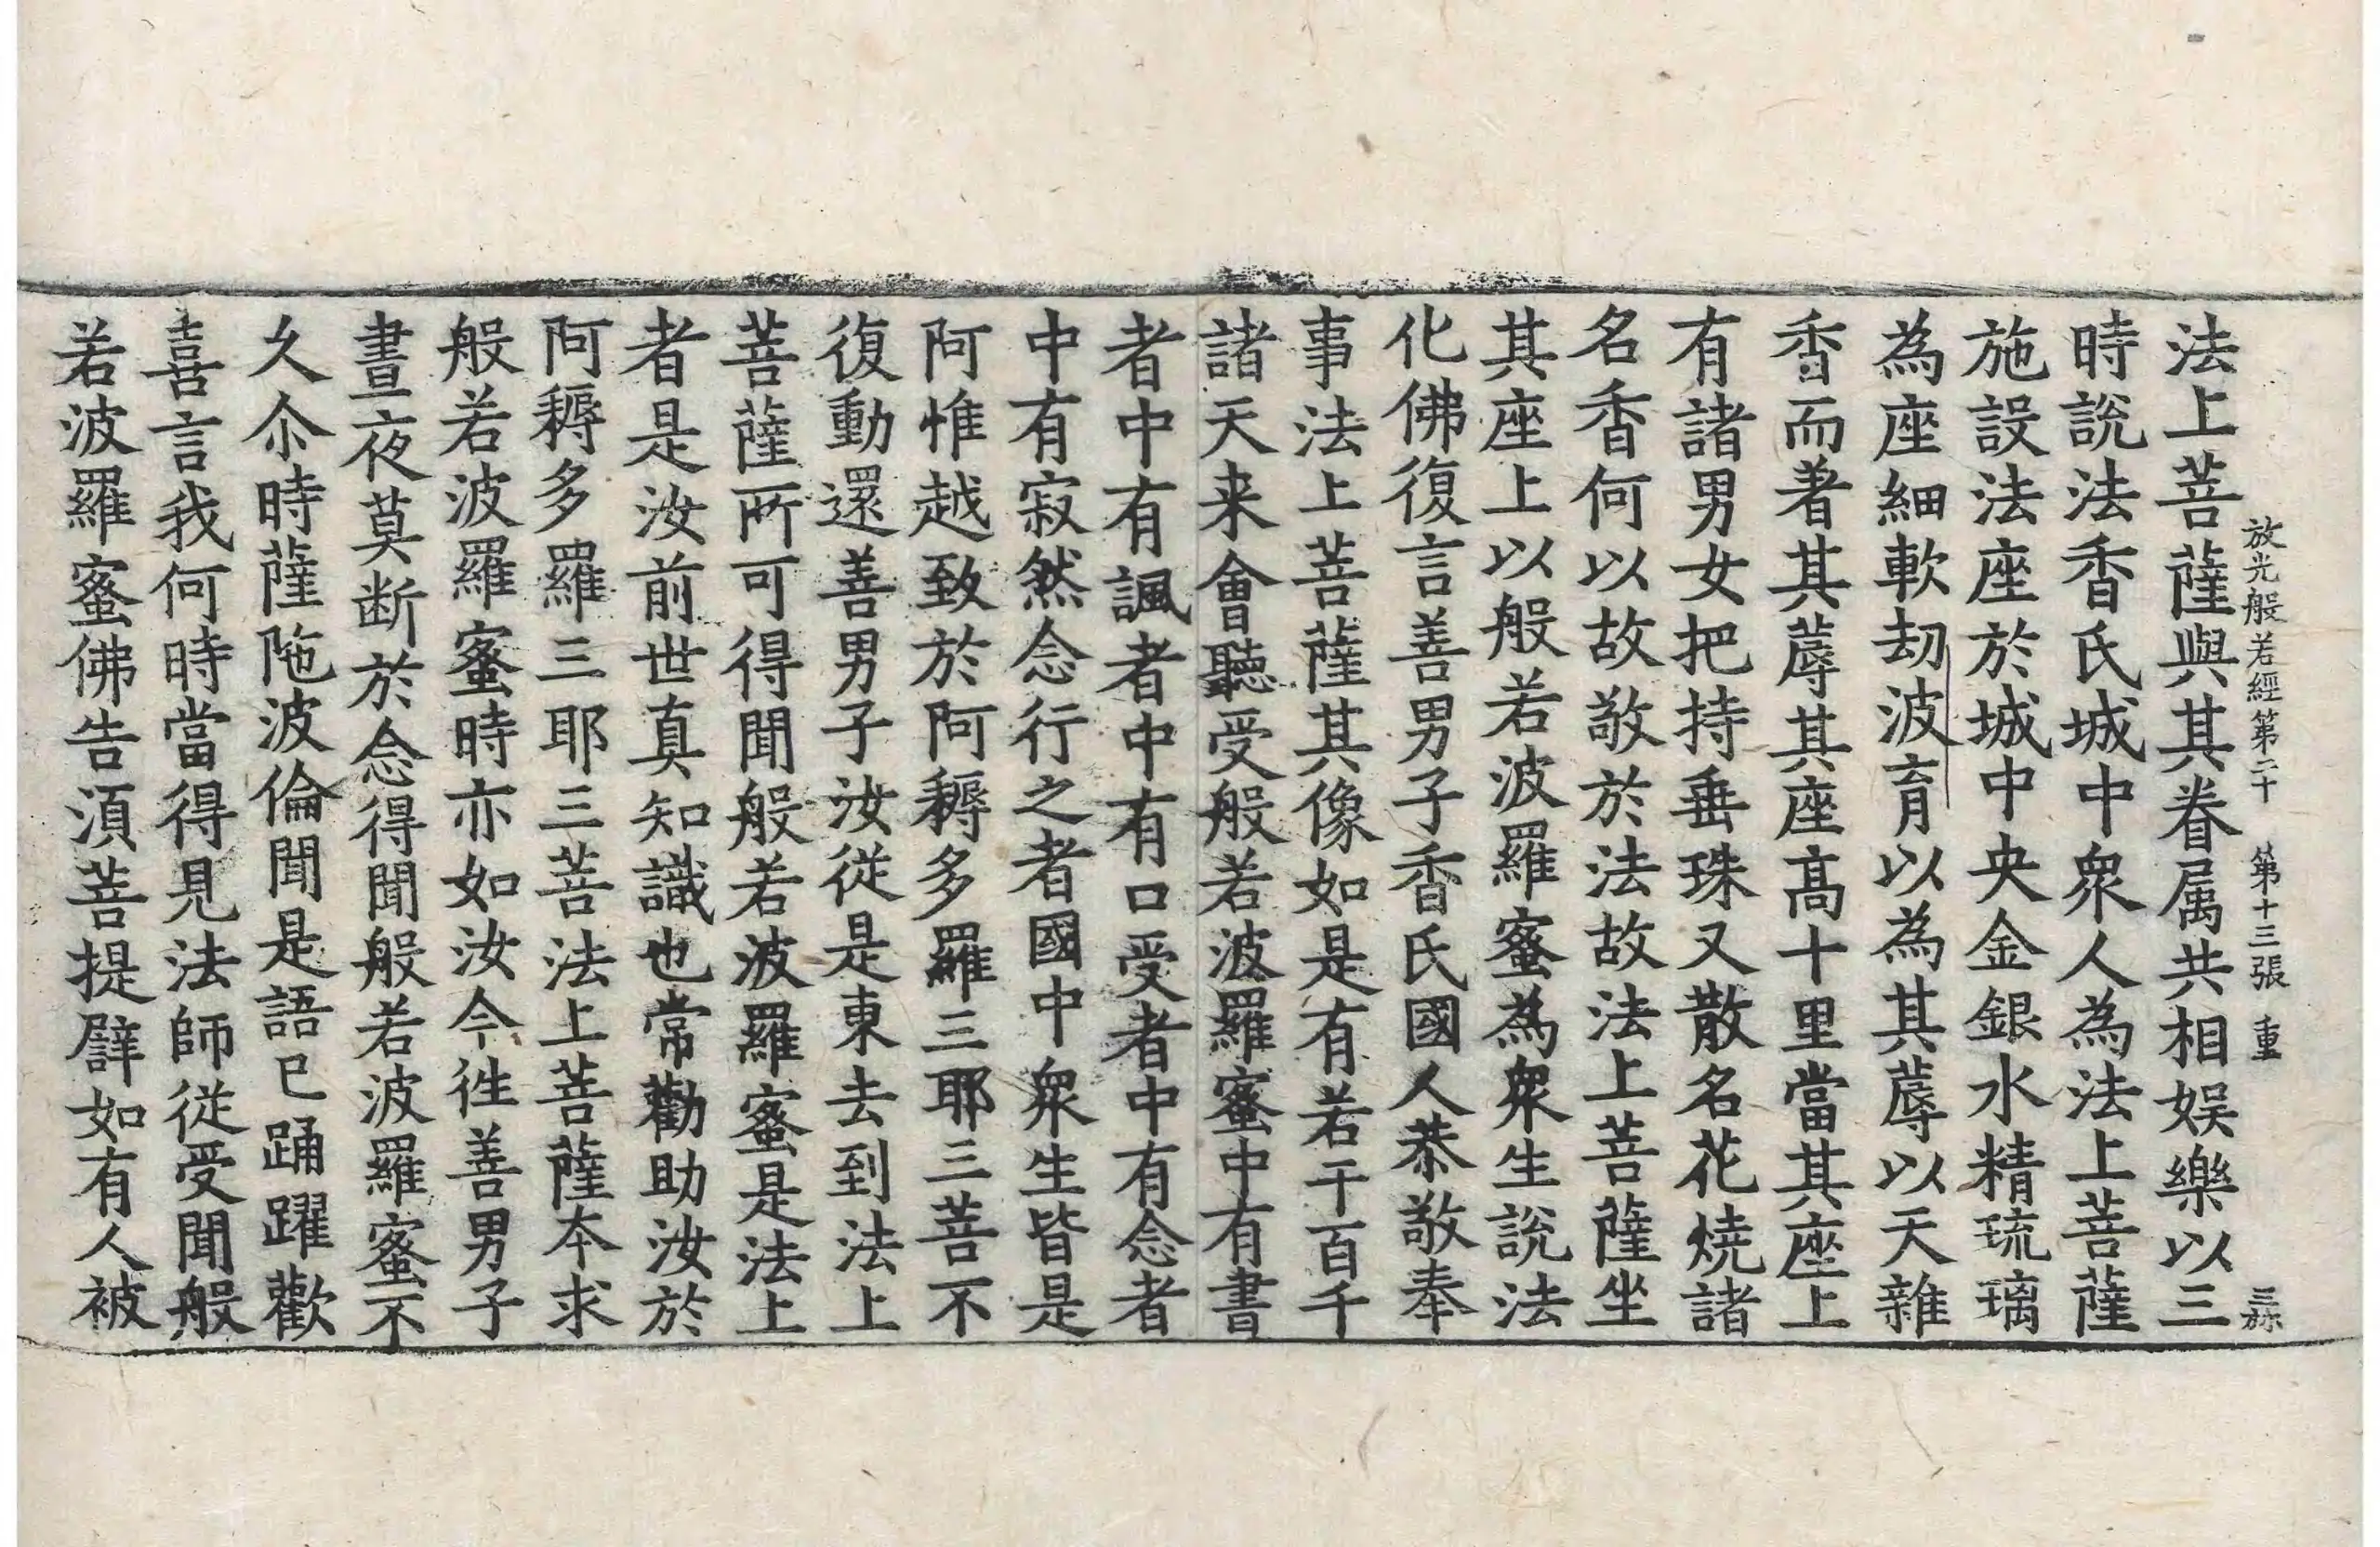 放光般若經第二十 第十三張 重
法上菩薩與其眷属共相娛樂以三
時說法香氏城中衆人為法上菩薩
施設法座於城中央金銀水精琉璃
為座細軟劫波育以為其蓐以天雜
香而著其蓐其座髙十里當其座上
有諸男女把持垂珠又散名花燒諸
名香何以故敬於法故法上菩薩坐
其座上以般若波羅蜜為衆生說法
化佛復言善男子香氏國人恭敬奉
事法上菩薩其像如是有若干百千
諸天来會聽受般若波羅蜜中有書
者中有諷者中有口受者中有念者
中有寂然念行之者國中衆生皆是
阿惟越致於阿耨多羅三耶三菩不
復動還善男子汝從是東去到法上
菩薩所可得聞般若波羅蜜是法上
者是汝前世真知識也常勸助汝於
阿耨多羅三耶三菩法上菩薩夲求
般若波羅蜜時亦如汝今往善男子
晝夜莫断於念得聞般若波羅蜜不
久尒時薩陁波倫聞是語已踊躍歡
喜言我何時當得見法師從受聞般
若波羅蜜佛告須菩提譬如有人被